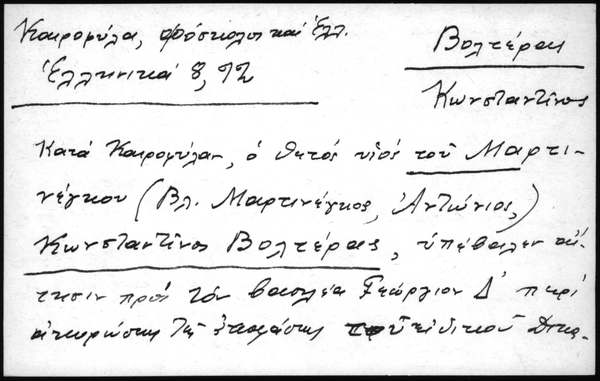 Καιροφύλα, Φώσκολος καὶ Ἑλλ.
Ἑλληνικά 8, 92
Βολτέρας
Κωνσταντῖνος
Κατά Καιροφύλαν, ὁ θετός υἱός τοῦ Μαρτι-
νέγκου (Βλ. Μαρτινέγκος, Ἀντώνιος,)
Κωνσταντῖνος Βολτέρας, ὑπέβαλεν αἴ-
τησιν πρός τόν βασιλέα Γεώργιον Δ' περί
ἀκυρώσεως τῆς ἀποφάσεως τοῦ εἰδικοῦ Δικα-